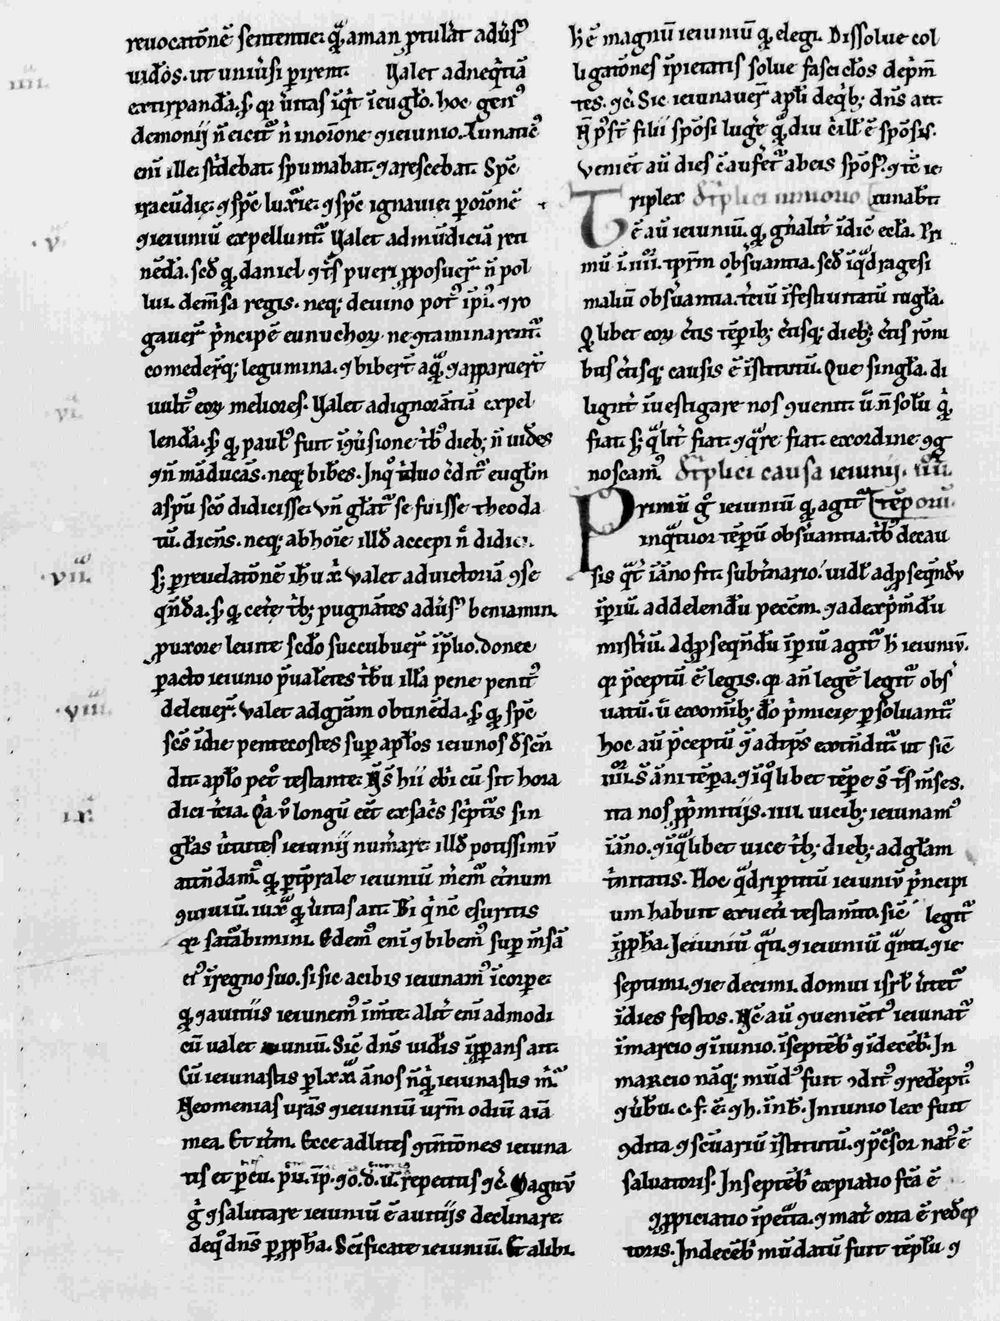 reuocatōnē sententie q̄ aman ꝓtul'at adūs'
uidōs. ut uniūsi ꝑirent. Ualet ad neq̄tiā
extirpandā. s; qr ūitas īq̄t ī eūglo. hoc gen'
demonij n̄ eicit' n̄ ī noīone ⁊ ieiunio. Lunatic'
enī ille st̄debat spumabat ⁊ arescebat. Spc̄
iracūdie. ⁊ spc̄ luxīe ⁊ spc̄ ignauie ꝑ oīonē
.v. ⁊ ieiuniū expelluntˀ. Ualet ad mūdiciā reti
nēdā. sed q̄ daniel ⁊ t's pueri ꝓposuer̄ n̄ pol
lui de mēsa regis. neq; de uino pot' ip̄i'. ⁊ ro
gauer̄ p'ncipē eunuchoꝝ ne ⁊taminarent'
comederq; legumina. ⁊ biber̄t aq̄. ⁊ apparuer̄t
.vi. uult' eoꝝ meliores. Ualet ad ignorātiā expel
lendā. s; q̄ paul' fuit ī ⁊u'sione t'b; dieb; n̄ uidēs
⁊ n̄ māducās. neq; bibēs. In q̄ t'duo c̄dit' euglm
a spū sc̄o didicisse. vn̄ gl'at' se fuisse theoda
tū. dicēs. neq; ab hoīe illd accepi n̄ didici.
.vii. s; ꝑ reuelatōnē ih'u x̄. Ualet ad uictoriā ⁊se
q̄ndā. s; q̄ cete t'b; pugnātes adūs' beniamin
ꝓ uxore leuite scd̄o succubuer̄ ī p̄lio. donec
ꝑacto ieiunio p̄ualētes t'bū illā pene penit'
.viii. deleuer̄. Ualet ad gr̄am obtinēdā. s; q̄ spc̄
sc̄s ī die pentecostes suꝑ apl'os ieiunos dscn
dit. apl'o pet' testante. N̄ s̄ hii ebri cū sit hora
.ix. diei t'cia. Qa v° longū eēt ex sac̄s sc̄ptis sin
gl'as ūtutes ieiunij num̄are illd potissimū
attn̄dam' q̄ ꝑ tp̄rale ieiuniū mēm et'num
⁊uiuiū. iux̄ q̄ ūitas ait. Bi q̄ nc̄ esuritis
qr sat'abimini. Edem' enī ⁊ bibem' suꝑ m̄sā
ei' ī regno suo. si sic a cibis ieiunam' ī corpe
q̄ ⁊ a uitiis ieiunem' ī m̄te. alit' enī ad modi
cū ualet ieiuniū. Sic dn̄s uidis īpp̄ans ait.
Cū ieiunastis ꝑ lxx ānos nq̄ ieiunastis m'
Neomenias ur̄as ⁊ ieiuniū ur̄m odiū aīa
mea. Et it'm. Ecce ad lites ⁊ ⁊tn̄tōnes ieiuna
tis et ꝑcu. pu. īp. ⁊ o. d. u. repetitis ⁊c̄. Magnū
g° ⁊ salutare ieiuniū ē a uitijs declinare
de q° dn̄s ꝑ ꝓph'a. Sc̄ificate ieiuniū. Et alibi.
h' ē magnū ieiuniū q̄ elegi. Dissolue col
ligatōnes ī pietatis solue fascic'los dep'm
tes. ⁊c̄. Sic ieiunauer̄ apl'i de q'b; dn̄s ait.
N̄ p's't filii spōsi luge q̄ diu c̄ ill' ē spōs's.
veniēt aū dies c̄ aufet' ab eis spōs'. ⁊ t̄c ie
Triplex dr̄plici ieiunio [iunabt̄.
ē aū ieiuniū. q̄ gn̄alit' īdic̄ eccl'a. Pri
mū ī .iiii. tp̄rm obs̄uantia. sed ī q̄dragesi
maliū obs̄uantia. t'ciū ī festiuitatū uigl'a.
Q° libet eoꝝ c̄tis tēp̄ib; c̄tisq; dieb; c̄tis rōni
bus c̄tisq; causis ē īstitutū. Que singl'a di
ligēt' īuestigare nos ⁊uenit. ū n̄ solū q̄
fiat. s; q̄lit' fiat ⁊ q̄re fiat ex ordine ⁊g
noscam'. dr̄plici causa ieiunij. iiii.
Primū g° ieiuniū q̄ agit' [tēporū
in q̄tuor tēpoꝝ obs̄uantia. t'b; de cau
sis q̄t' ī āno fit. sub t'nario. uidl' ad ꝓseq̄ndū
īp̄iū. ad delendū pecc̄m. ⁊ ad exp'm̄dū
mist'iū. Ad ꝓseq̄ndū īp̄iū agit' h' ieiuniū.
qr p̄ceptū ē legis. qr an̄ legē legit' obs'
uatū. ū ex omīb; do p'micie ꝑsoluant'
hoc aū p̄ceptū ⁊ ad tp̄s extn̄dit' ut sic̄
iiii. s̄ āni tēpa. ⁊ ī q°libet tēpe s̄ t's m̄ses.
ita nos ꝓ p'mitijs .iiii. uicib; ieiunam'
ī āno. ⁊ ī q̄libet uice t'b; dieb; ad gl'am
t'nitatis. Hoc q̄dripti'tū ieiuniū p'ncipi
um habuit ex uet'i testam̄to. sic̄ legit'
ī ꝓph'a. Ieiuniū q̄ti. ⁊ ieiuniū q̄nti. ⁊ ie
septimi. ⁊ ie decimi. domui isrl' u'tet'
ī dies festos. Nc̄ aū ⁊ueniēt' ieiunat'
ī marcio ⁊ ī iunio. ī septēb' ⁊ ī decēb'. In
marcio nāq; mūd' fuit ⁊dit' ⁊ redēpt'.
⁊ ūbū. c. f. ē. ⁊ h. ī nb̄. In iunio lex fuit
⁊dita ⁊ sc̄uariū īstitutū. ⁊ p̄c'sor nat' ē
saluatoris. In septēb' expiatio fc̄a ē
⁊ ꝓpiciatio ī pet'ta. ⁊ mat' orta ē redēp
toris. In decēb' mūdatū fuit tēplū ⁊